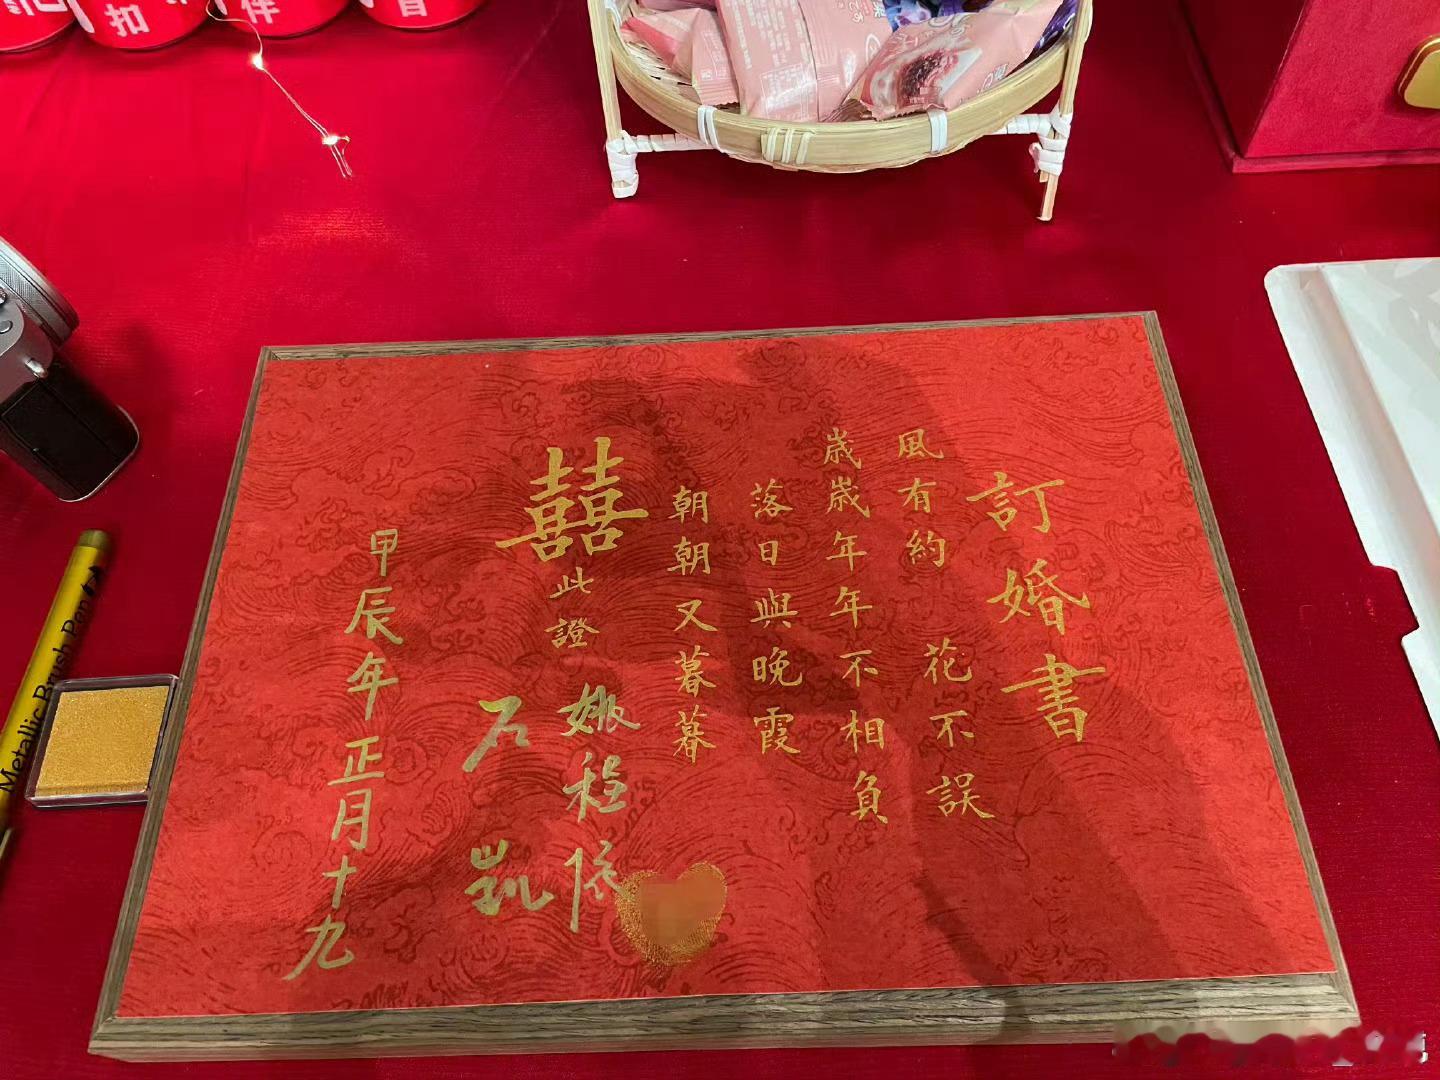 訂婚書
風有約 花不誤
歲歲年年不相負
落日與晚霞
朝朝又暮暮
囍
此證
石凱
甲辰年正月十九
Metallic Brush Pen
扣
伴